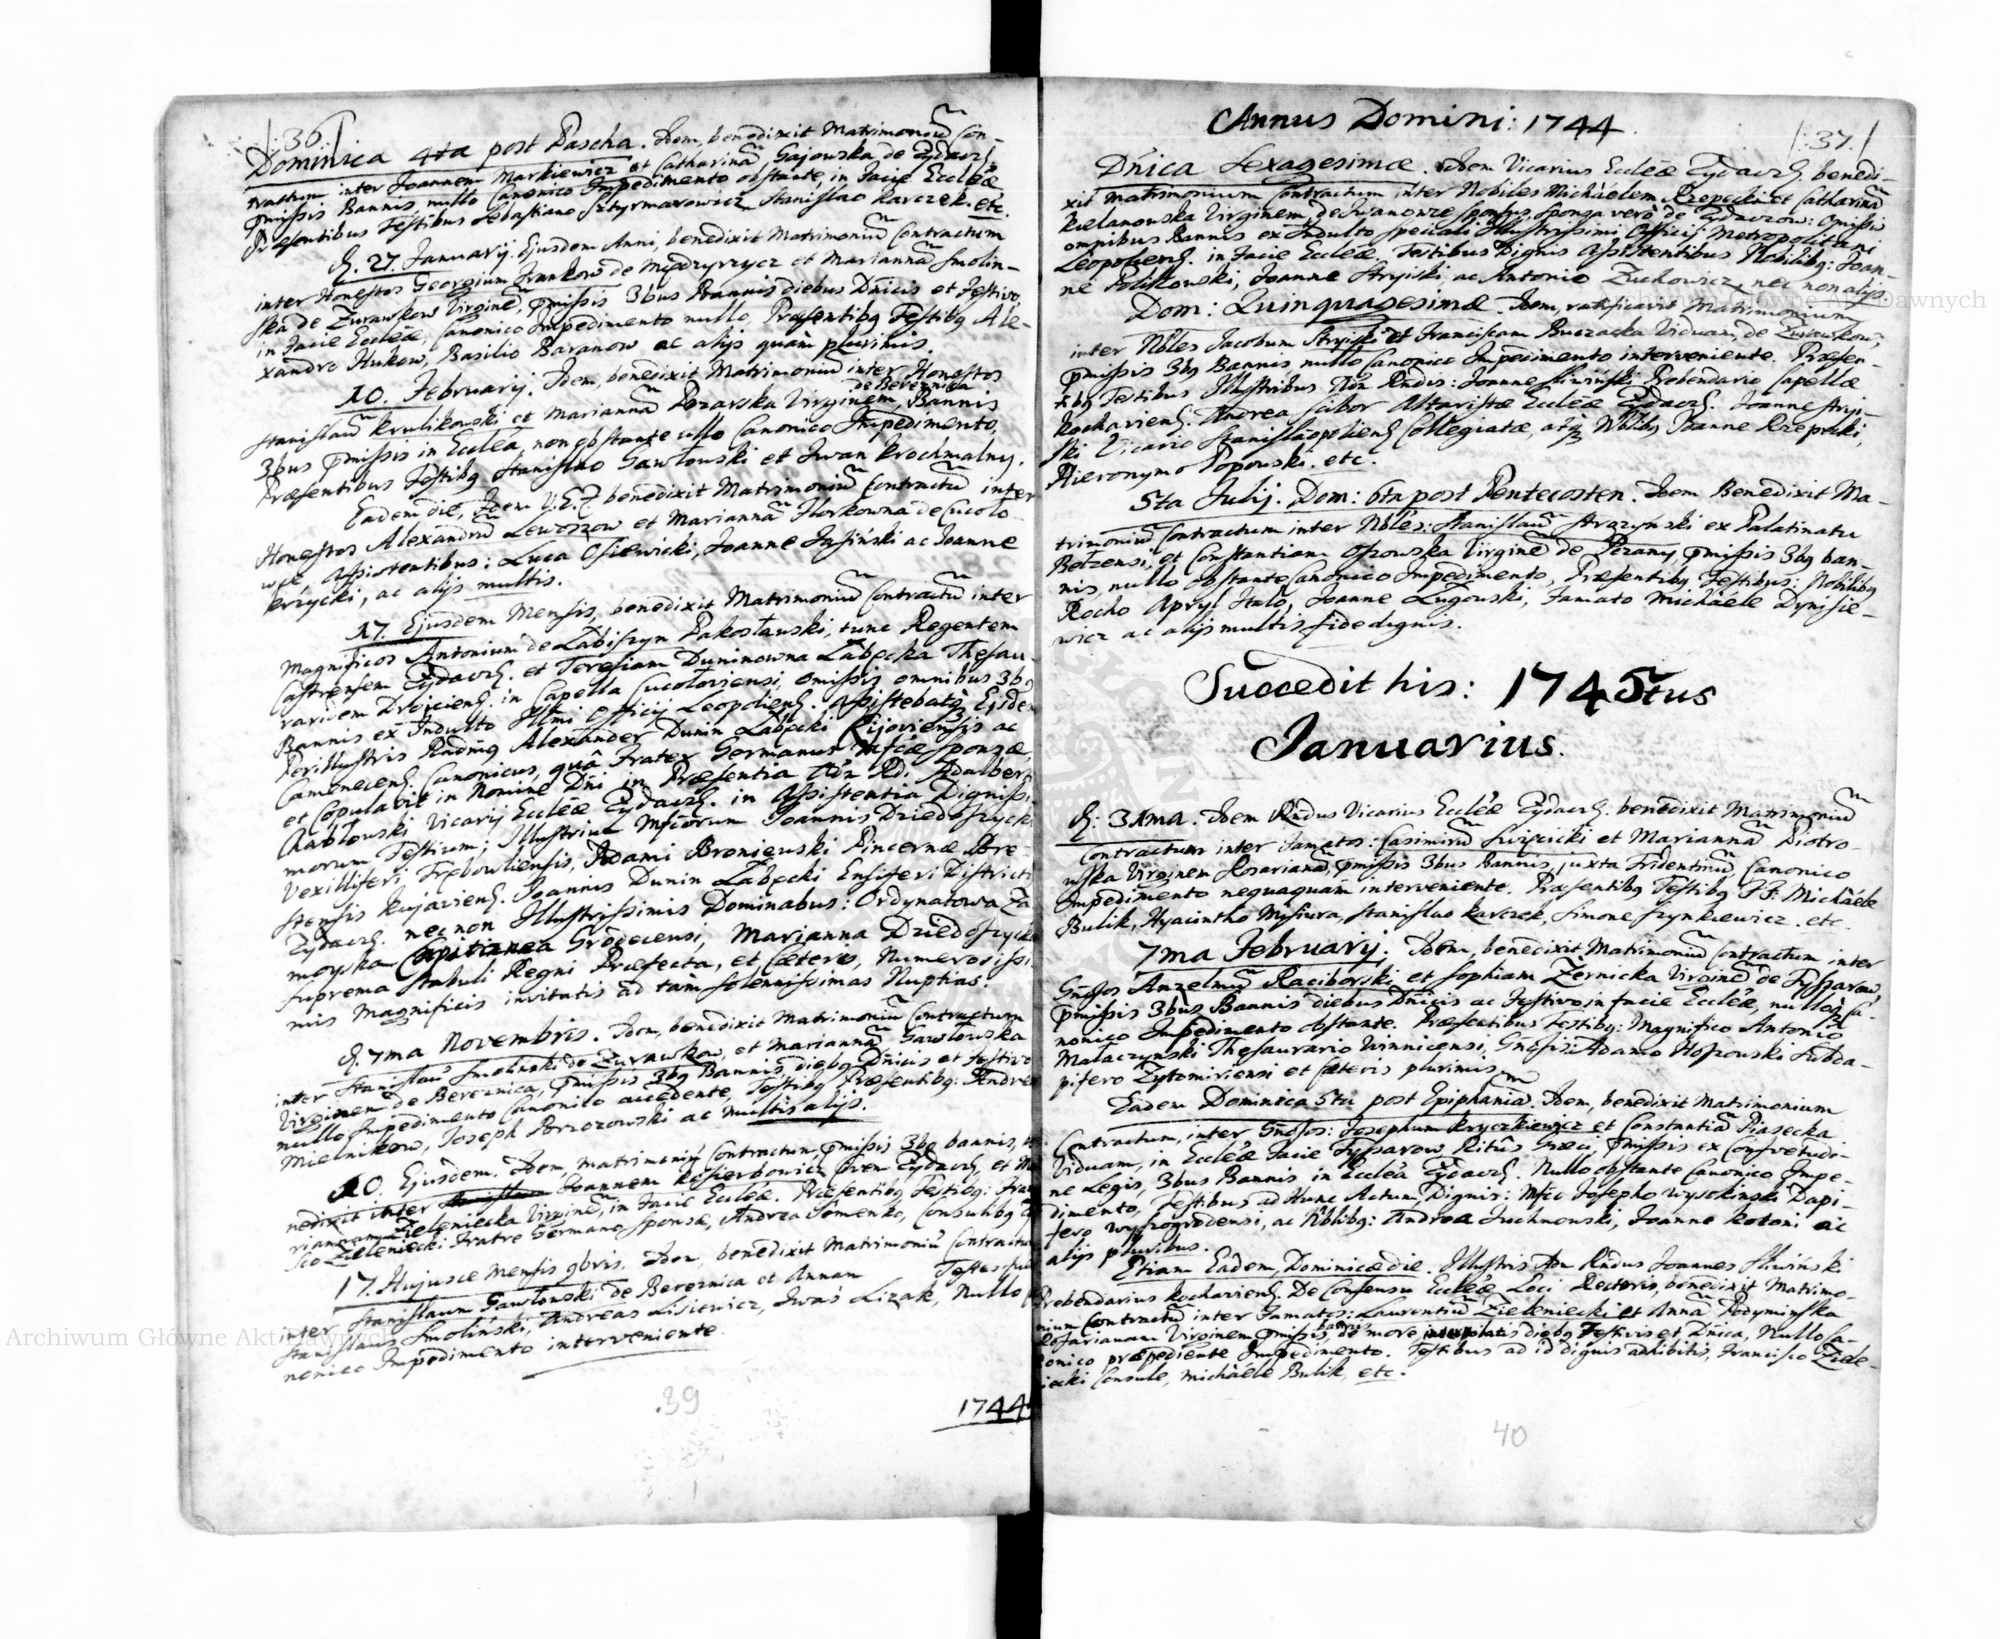 /:36/
Dominica 4ta post Pascha. Idem, benedixit Matrimoniũ Con-
tractum inter Joannem Markiewicz et Catharinã Gajowska de Zydacz.
pmissis Bannis nullo Canonico Impedimento obstante, in facie Eccleæ
Præsentibus Testibus Sebastiano Sztyrmarowicz Stanislao Karczek. etc.
d. 27. Januarij. Ejusdem Anni, benedixit Matrimoniũ Contractum
inter Honestos Georgium Frankow de Międzyrzycz et Mariannã Smolin-
ska de Zurawkow Virginẽ, pmissis 3bus Bannis diebus Dnicis et Festivo,
in facie Eccleæ, Canonico Impedimento nullo, Præsentibq Testibq Ale-
xandro Hukow, Basilio Baranow ac alijs quàm plurimis.
10. Februarij. Idem, benedixit Matrimoniũ inter Honestos
de Bereznica
Stanislaũ Krulikowski et Mariannã Pozarska Virginem, Bannis
3bus pmissis in Ecclea, non obstante ullo Canonico Impedimento,
Præsentibus Testibq Stanislao Gawłowski et Iwan Krochmalny.
Eadem die, Idem V.E.Z benedixit Matrimoniũ Contractũ inter
Honestos Alexandrũ Leworzow et Mariannã Florkowna de Cucolo-
wce, Assistentibus: Luca Osiewicki, Joanne Jasiński ac Joanne
Krzycki, ac alijs multis.
17. Ejusdem Mensis, benedixit Matrimoniũ Contractũ inter
Magnificos Antonium de Labiszyn Pakosławski, tunc Regentem
Castrensem Zydacz. et Teresiam Duninowna Łabęcka Thesau-
raridem Drohicien. in Capella Cucoloviensi, omissis omnibus 3bq
Bannis ex Indulto Illmi Officij Leopolien. Assistebatq Ejsdem
Perillustris Rndmq Alexander Dunin Łabęcki Kijoviensis ac
Camenecen. Canonicus, quâ Frater Germanus Mfcæ Sponsæ,
et Copulavit in Nomine Dni in Præsentia Adr. Rd. Adalberti
Chabłowski Vicarij Eccleæ Zydacz. in Assistentia Dignissi-
morum Testium; Illustrium Mfcorum Joannis Dzieduszycki
Vexilliferi Trebowliensis, Adami Broniewski Pincernæ Bre-
stensis Kujavien. Joannis Dunin Łabęcki Ensiferi Districti
Zydacz. nec non Illustrissimis Dominabus: Ordynatowa Za-
moyska Capitanea Grodecensi, Marianna Dzieduszycka
Suprema Stabuli Regni Præfecta, et Cæteris, Numerosissi-
mis Magnificis invitatis ad tàm solennissimas Nuptias.
d. 7ma Novembris. Idem, benedixit Matrimoniũ Contractum
inter Stanislaũ Smolinski de Zurawkow, et Mariannã Gawłowska
Virginem de Bereznica, pmissis 3bq Bannis diebq Dnicis et Festivo
nullo Impedimento Canonico accedente, Testibq Præsentibq: Andrea
Mielnikow, Joseph Brzozowski ac multis alijs.
10. Ejusdem. Idem, matrimonij Contractum, pmissis 3bq bannis,
nedixit inter Joannem Kosierbowicz Civem Zydacz. et Ma-
riannam Zieleniecka Virginẽ, in Facie Eccleæ. Præsentibq Testibq: Fran-
sco Zieleniecki Fratre Germano Sponsæ, Andrea Somenko, Consulibq
17. Hujusce Mensis 9bris. Idem, benedixit Matrimoniũ Contractu
inter Stanislaum Gawłonski de Bereznica et Annam Testes
Stanislaus Smoliński, Andreas Lisiewicz, Iwaś Lizak, Nullo
nonico Impedimento interveniente.
39
1744
Annus Domini: 1744
/:37./
Dnica Sexagesimæ. Idem Vicarius Eccleæ Zydacz. benedi-
xit Matrimonium Contractum inter Nobiles Michäelem Rzepecki et Catharinã
Kielanowska Virginem, de Iwanowce Sponsus, Sponsa verò de Zydaczow: Omissis
omnibus Bannis ex Indulto speciali Illustrissimi Officij Metropolitani
Leopolien. in facie Eccleæ. Testibus Dignis Assistentibus Nobilibq: Joan-
ne Polikowski, Joanne Stryiski ac Antonio Zuchowicz, nec non alijs
Dom: Quinquagesimæ. Idem, ratificavit Matrimonium
inter Nbles Jacobum Stryiski et Franciscam Buczacka Viduam, de Zurawkow,
pmissis 3bq Bannis, nullo Canonico Impedimento interveniente. Præsen-
tibq Testibus Illustribus Adr. Rndis: Joanne Sliwiński Prebendario Capellæ
Kochavien. Andrea Sabor Altaristæ Eccleæ Zydacz. Joanne Stryi-
ski Vicario Stanislaopolien. Collegiatæ, atq Nblibq Joanne Rzepecki,
Hieronymo Popowski. etc.
5ta Julij. Dom: 6ta post Pentecosten. Idem Benedixit Ma-
trimoniũ Contractum inter Nbles: Stanislaũ Strazyński ex Palatinatu
Belzensi, et Constantiam Ossowska Virginẽ de Pczany, pmissis 3bq ban-
nis, nullo obstante Canonico Impedimento, Præsentibq Testibus: Nobilibq
Rocho Apryl Italo, Joanne Ługowski, Famato Michäéle Dynisie-
wicz ac alijs multis fide dignis.
Succedit his: 1745tus
Januarius.
d: 31ma. Idem Rndus Vicarius Eccleæ Zydacz. benedixit Matrimoniũ
Contractum inter Famatos: Casimirũ Surzcicki et Mariannã Piotro-
wska Virginem Rosarianã, pmissis 3bus Bannis, juxta Tridentinũ, Canonico
Impedimento nequaquam interveniente. Præsentibq Testibq FF: Michäéle
Bulik, Hyacintho Misiura, Stanislao Karczek, Simone Szynkiewicz. etc.
7ma Februarij. Idem, benedixit Matrimoniũ Contractum inter
Gnosos Anzelmũ Raciborski et Sophiam Zernicka Virginẽ de Tyssarow
pmissis 3bus Bannis diebus Dnicis ac Festivo in facie Eccleæ, nullo Ca-
nonico Impedimento obstante. Præsentibus Testibq: Magnifico Antonio
Malaczynski Thesaurario Winnicensi, Gnosis: Adamo Hoszowski Subda-
pifero Zytomiriensi et Cæteris plurimis
Eadem Dominica 5ta post Epiphania. Idem, benedixit Matrimonium
Contractum, inter Gnosos: Josephum Kryczkiewicz et Constantiã Piasecka
Viduam, in Eccleæ Facie Tyssarow, Ritûs Græci pmissis ex Consvetudi-
ne Legis, 3bus Bannis in Ecclea Zydacz. Nullo obstante Canonico Impe-
dimento, Testibus ad Hunc Actum Dignis: Mfco Josepho Wysokinski Dapi-
fero Wyszogrodensi, ac Nblibq: Andrea Juchnowski, Joanne Kotoni ac
alijs pluribus.
Etiam Eadem, Dominicæ die. Illustris Adm Rndus Joannes Sliwiński
Prebendarius Kochavien. De Consensu Eccleæ Loci Rectoris, benedixit Matrimo-
nium Contractũ inter Famatos: Laurentiũ Zieleniecki et Annã Podyminska
Rosarianam Virginem pmissis bannis de more, diebq Festivis et Dnica, Nullo Ca-
nonico præpediente Impedimento. Testibus ad id dignis adhibitis, Francisco Ziele-
niecki Consule, Michäéle Bulik, etc.
40
Archiwum Główne Akt Dawnych
Archiwum Główne Akt Dawnych